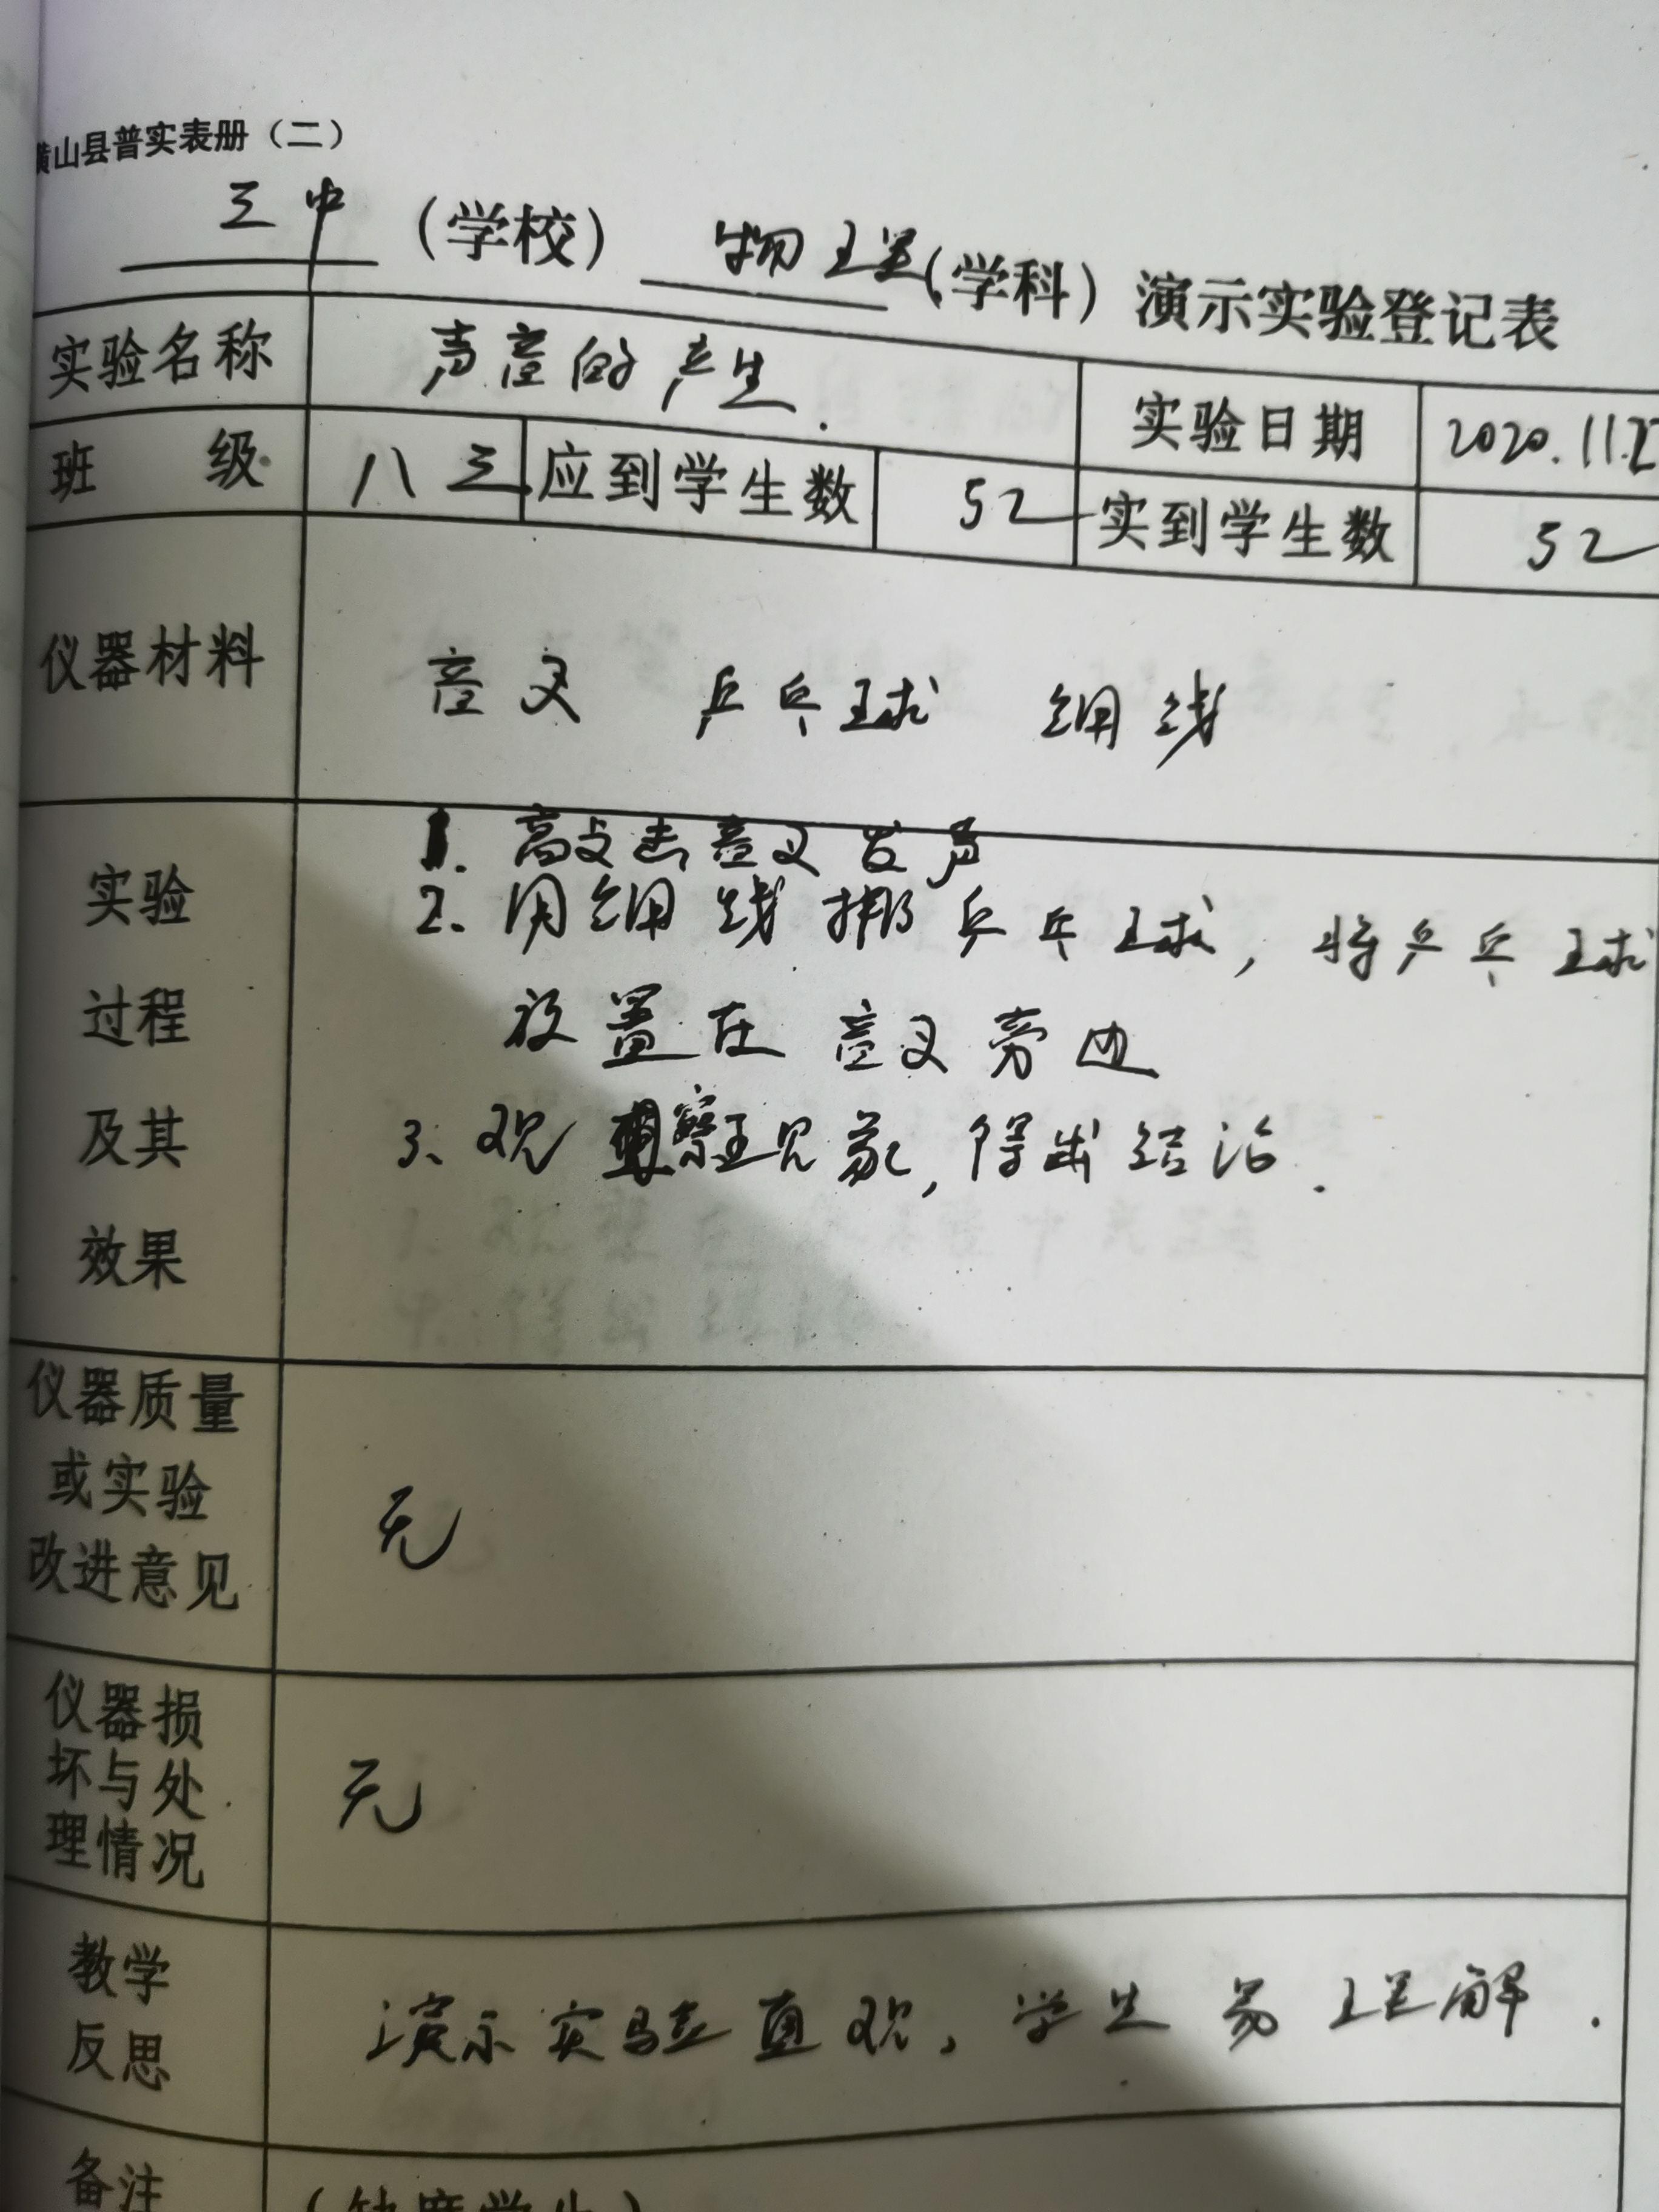 横山县普实表册（二）
三中（学校） 物理（学科）演示实验登记表
实验名称 声音的产生. 实验日期 2020.11.2
班级 八三 应到学生数 52 实到学生数 52
仪器材料 音叉 乒乓球 细线
实验过程及其效果
1. 敲击音叉发声
2. 用细线绑乒乓球，将乒乓球
放置在音叉旁边
3、观察现象，得出结论.
仪器质量
或实验
改进意见
无
仪器损
坏与处
理情况
无
教学
反思
演示实验直观，学生易理解.
备注